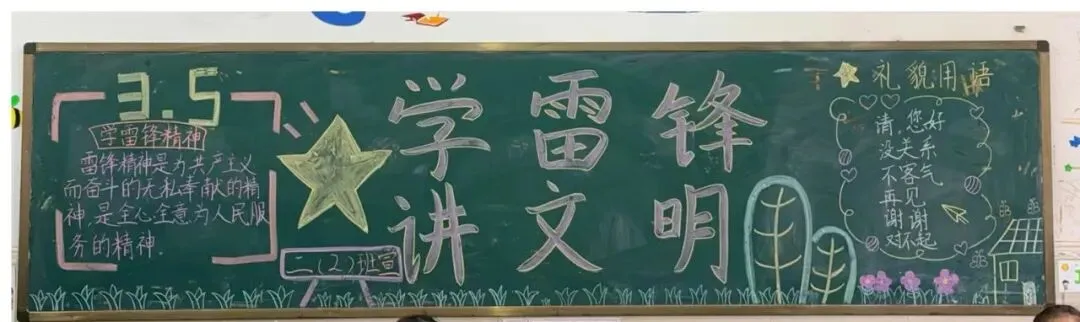 3.5
学雷锋精神
雷锋精神是为共产主义
而奋斗的无私奉献的精
神,是全心全意为人民服
务的精神.
二(2)班宣
学雷锋
讲文明
礼貌用语
请,您好
没关系
不客气
再见
谢谢
对不起